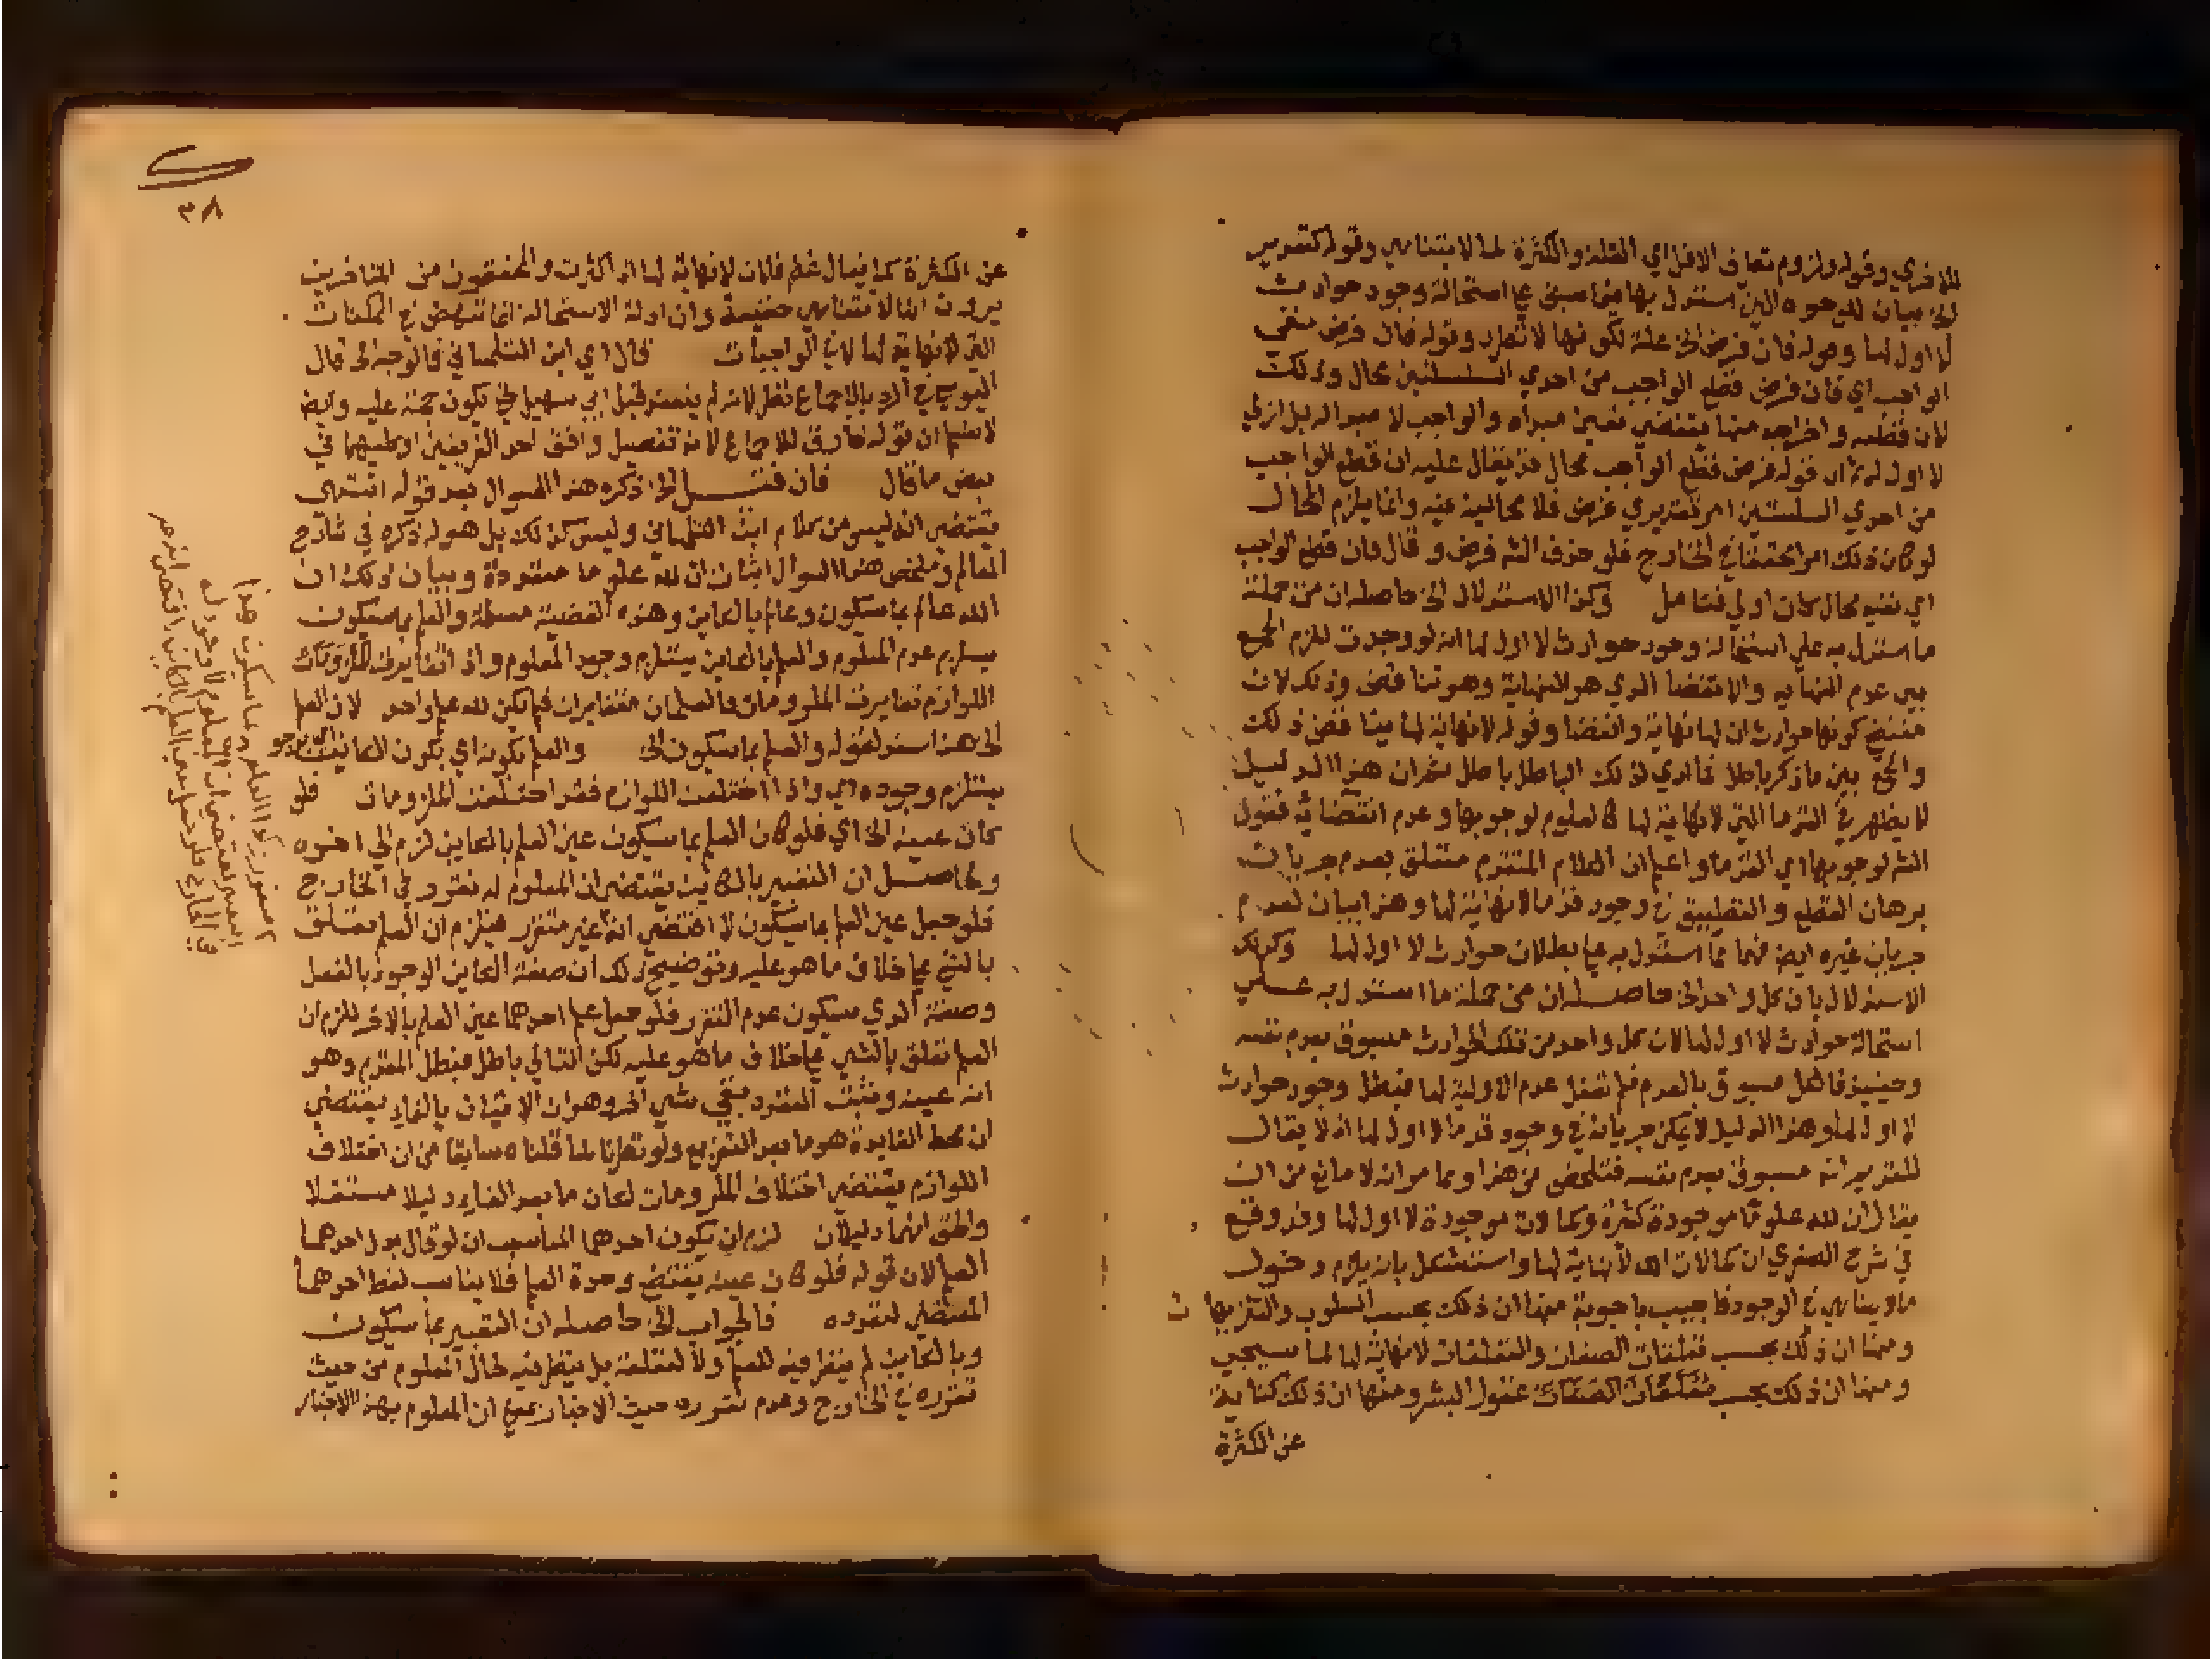 للاخري وقوله ولزوم تعا في الاقل اي القلة والكثرة لما لا يتناهي وقوله كتقدير
الخ بيان للوجوه التي استدل بها فيما سبق على استحالة وجود حوادث
لا اول لها وقوله فان فرض الخ علة لكونها لا تطرد وقوله فان فرض منفي
الواجب اي فان فرض قطع الواجب من احدي السلسلتين محال وذلك
لان قطعه واخراجه منها يقتضي تعين مبداه والواجب لا مبدا له بل ازلي
لا اول له ثم ان قوله فرض قطع الواجب محال قد يقال عليه ان قطع الواجب
من احدي السلسلتين امر تقديري فرضي فلا محالية فيه وانما يلزم المحال
لو كان ذلك امرا محققا في الخارج فلو حذف الشه فرض وقال فان قطع الواجب
اي نفيه محال كان اولي فتامل وكذا الاستدلال الخ حاصله ان من جملة
ما استدل به علي استحالة وجود حوادث لا اول لها انه لو وجدت للزم الجمع
بين عدم النهاية والانقضا الذي هو النهاية وهو تناقض وذلك لان
مقتضي كونها حوادث ان لها نهاية وانقضا وقوله لا نهاية لها يناقض ذلك
والجمع بين ما ذكر باطل فما ادي لذلك الباطل باطل ثم ان هذا الدليل
لا يظهر في القدما التي لا نهاية لها كالعلوم لوجوبها وعدم انقضائها فقول
الشه لوجوبها اي القدما واعلم ان الكلام المتقدم متعلق بعدم جريان
برهان القطع والتطبيق في وجود قدما لا نهاية لها وهذا بيان لعدم
جريان غيره ايضا فيها مما استدل به علي بطلان حوادث لا اول لها وكذلك
الاستدلال بان كل واحد الخ حاصله ان من جملة ما استدل به علي
استحالة حوادث لا اول لها لان كل واحد من تلك الحوادث مسبوق بعدم نفسه
وحينيذ فالكل مسبوق بالعدم فلم تعقل عدم الاولية لها فبطل وجود حوادث
لا اول لها وهذا الدليل لا يمكن جريانه في وجود قدما لا اول لها اذ لا يقال
للقديم انه مسبوق بعدم نفسه فتلخص من هذا ومما مر انه لا مانع من ان
يقال ان لله علوما موجودة كثيرة وكمالات موجودة لا اول لها وقد وقع
في شرح الصغري ان كمالات الله لا نهاية لها واستشكل بانه يلزم دخول
مالا يتناهي في الوجود فاجيب باجوبة منها ان ذلك بحسب السلوب والتنزيهات
ومنها ان ذلك بحسب تعلقات الصفات والتعلقات لا نهاية لها لما سيجي
ومنها ان ذلك بحسب عقول البشر ومنها ان ذلك كناية
عن الكثرة
٣٨
عن الكثرة كما يقال غنم فلان لا نهاية لها اذا كثرت والمحققون من المتاخرين
يرون انها لا تتناهي حقيقة وان ادلة الاستحالة انما تنهض في الممكنات
التي لا نهاية لها لا في الواجبات قال اي ابن التلمساني فالوجه الخ قال
اليوسي في الرد بالاجماع نظر لانه لم ينعقد قبل ابي سهيل حتي يكون حجة عليه وايضا
لا نسلم ان قوله خارق للاجماع لانه تفصيل وافق احد الفريقين او كليهما في
بعض ما قال فان قلت الخ ذكره هذا السوال بعد قوله انتهي
يقتضي انه ليس من كلام ابن التلمساني وليس كذلك بل هو له ذكره في شارح
المعالم وملخص هذا السوال اثبات ان لله علوما متعددة وبيان ذلك ان
الله عالم بما سيكون وعالم بالكاين وهذه القضية مسلمة والعلم بما سيكون
يستلزم عدم المعلوم والعلم بالكاين يستلزم وجود المعلوم واذا تغايرت
اللوازم تغايرت الملزومات فالعلمان متغايران فلم يكن لله علم واحد لان العلم
الخ هذا سند لقوله والعلم بما سيكون الخ والعلم بكونه اي بكون الكاين
يستلزم وجوده اي واذا اختلفت اللوازم فقد اختلفت الملزومات فلو
كان عينه الخ اي فلو كان العلم بما سيكون عين العلم بالكاين لزم الي اخره
وحاصله ان التعبير بالكاين يقتضي ان المعلوم له تقرر في الخارج
فلو جعل عين العلم بما سيكون لاقتضي انه غير متقرر فيلزم ان العلم متعلق
بالشي علي خلاف ما هو عليه وتوضيح ذلك ان صفة الكاين الوجود بالفعل
وصفة الذي سيكون عدم التقرر فلو جعل علم احدهما عين العلم بالاخر للزم ان
العلم تعلق بالشي علي خلاف ما هو عليه لكن التالي باطل فبطل المقدم وهو
انه عينه وثبت التعدد بقي شي اخر وهو ان الاتيان بالفاء يقتضي
ان محط الفايدة هو ما بعد التفريع ولو نظرنا لما قلناه سابقا من ان اختلاف
اللوازم يقتضي اختلاف الملزومات لكان ما بعد الفاء دليلا مستقلا
والحق انهما دليلان لزم ان يكون احدهما المناسب ان لو قال بدل احدهما
العلم لان قوله فلو كان عينه يقتضي وحدة العلم فلا يناسب لفظ احدهما
المقتضي لتعدده فالجواب الخ حاصله ان التعبير بما سيكون
وبالكاين لم ينظر فيه للعلم ولا لتعلقه بل ينظر فيه لحال المعلوم من حيث
تقرره في الخارج وعدم تقرره حيث الاخبار بمعني ان المعلوم بهذا الاختبار